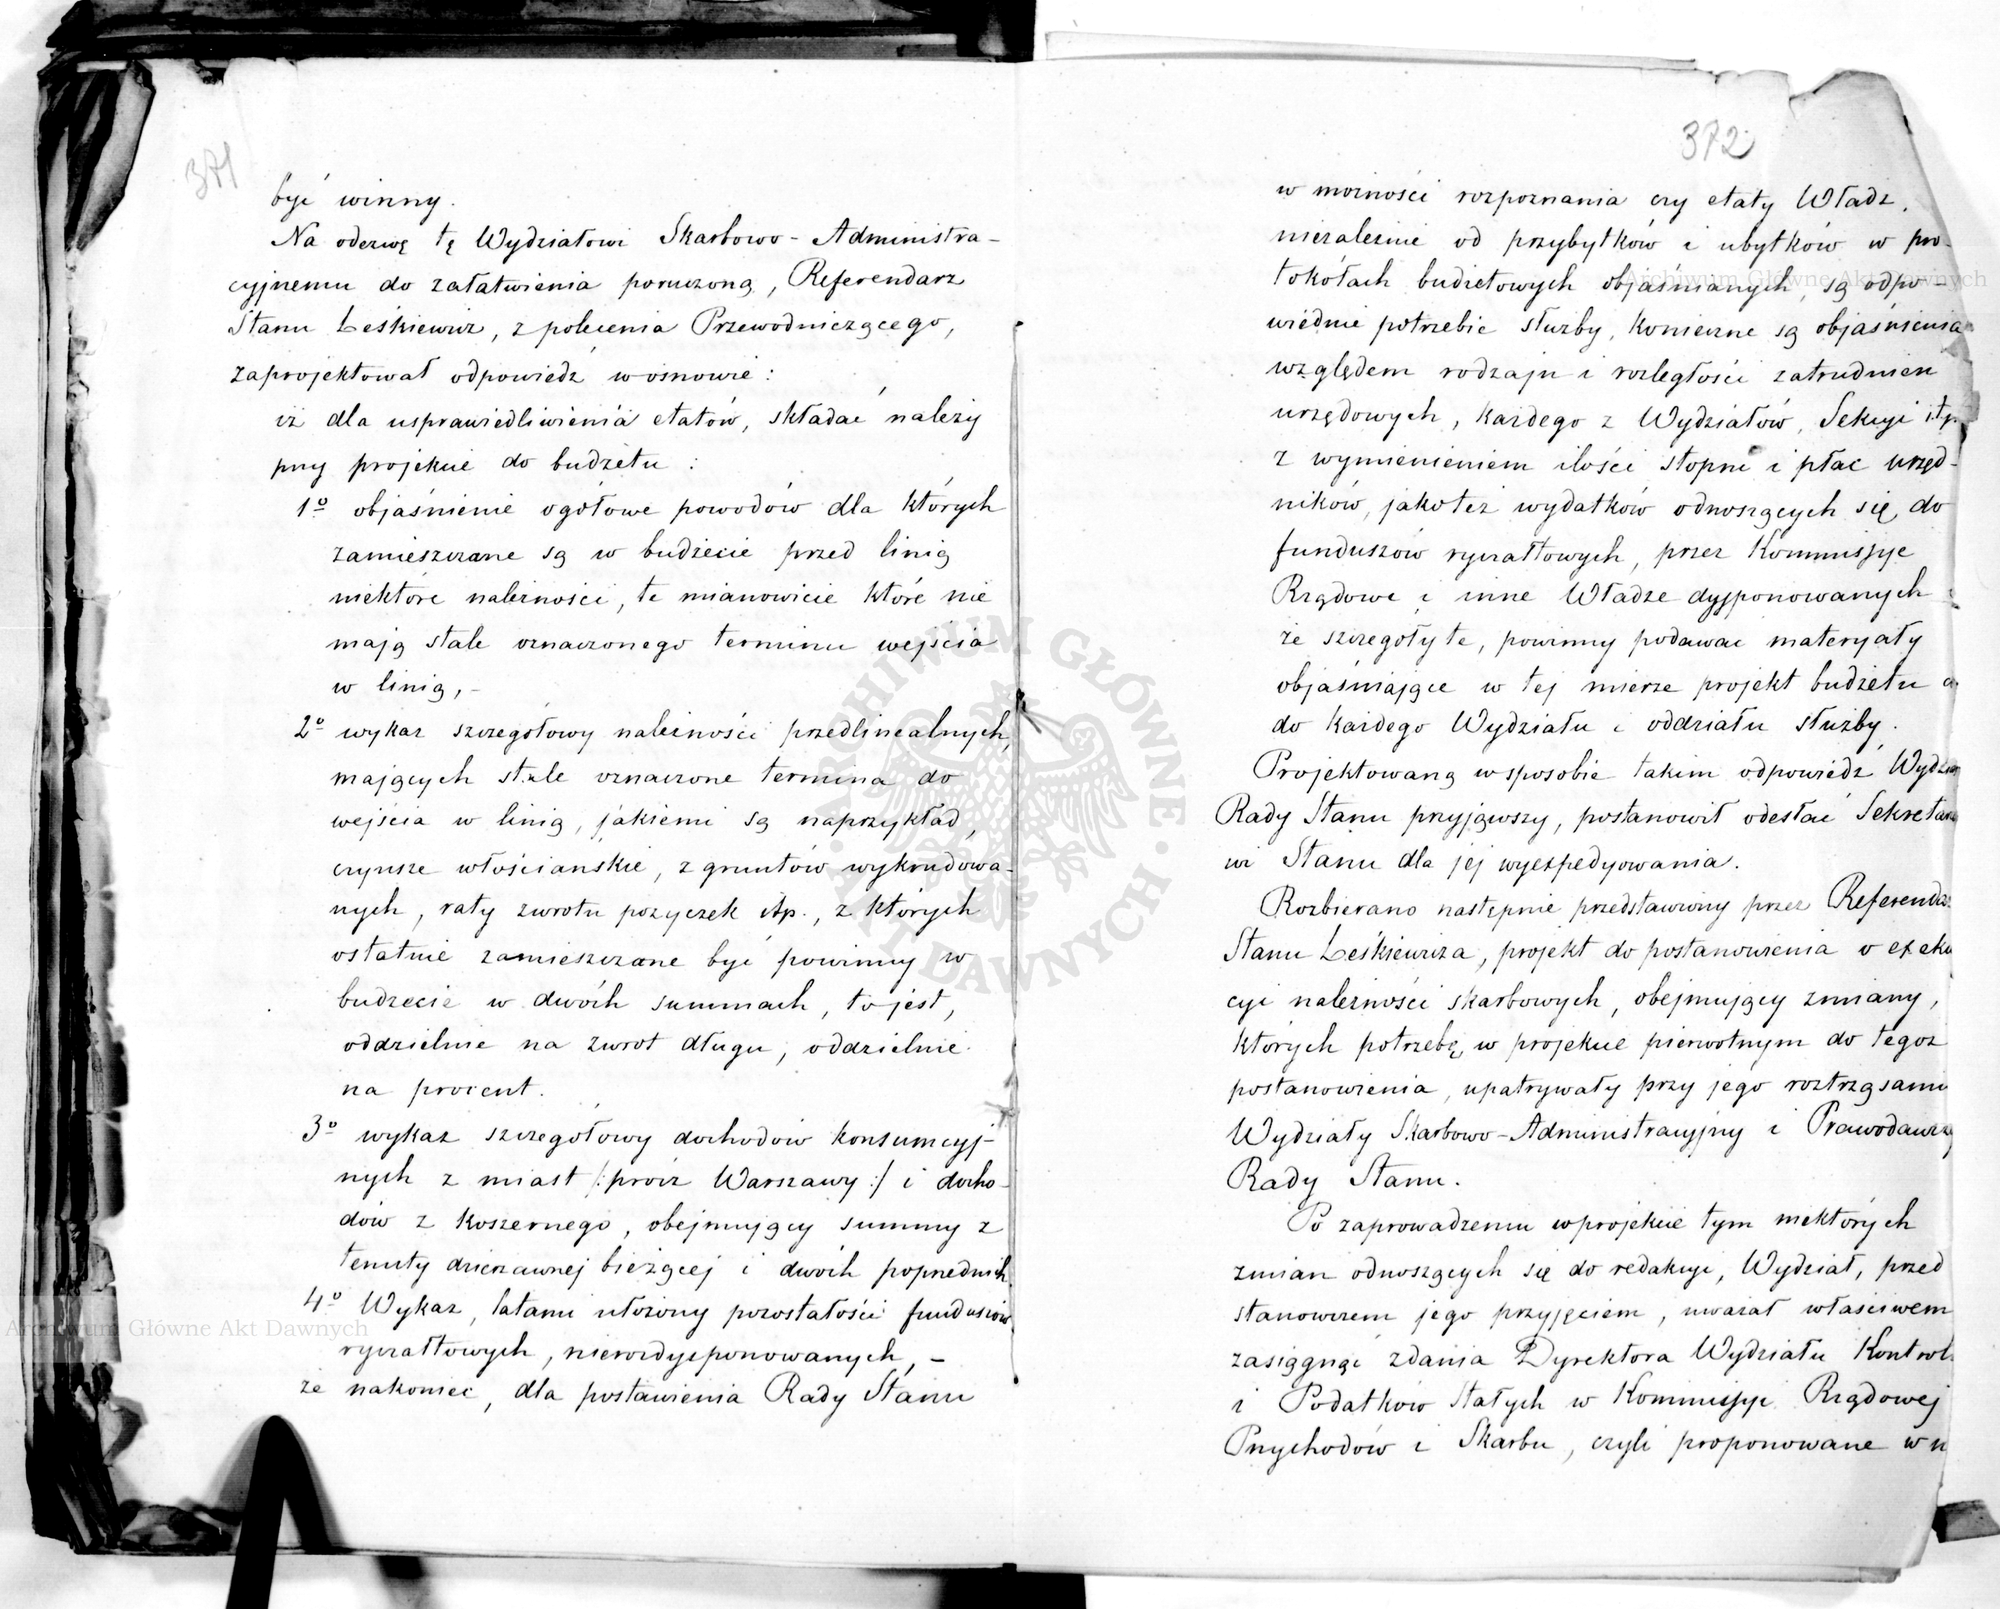 371
być winny.
Na odezwę tę Wydziałowi Skarbowo-Administra-
cyjnemu do załatwienia poruczoną, Referendarz
Stanu Leśkiewicz, z polecenia Przewodniczącego,
zaprojektował odpowiedź w osnowie:
iż dla usprawiedliwienia etatów, składać należy
przy projekcie do budżetu:
1º objaśnienie ogółowe powodów dla których
zamieszczane są w budżecie przed linią
niektóre należności, te mianowicie które nie
mają stale oznaczonego terminu wejścia
w linią,-
2º wykaz szczegółowy należności przedlinealnych,
mających stale oznaczone termina do
wejścia w linią, jakiemi są naprzykład,
czynsze włościańskie, z gruntów wykrudowa-
nych, raty zwrotu pożyczek itp., z których
ostatnie zamieszczane być powinny w
budżecie w dwóch summach, to jest,
oddzielnie na zwrot długu, oddzielnie
na procent.
3º wykaz szczegółowy dochodów konsumcyj-
nych z miast /:prócz Warszawy:/ i docho-
dów z koszernego, obejmujący summy z
tenuty dzierżawnej bieżącej i dwóch poprzednich.
4º Wykaz, latami ułożony pozostałości funduszów
ryczałtowych, nierozdysponowanych,-
że nakoniec, dla postawienia Rady Stanu
372
w możności rozpoznania czy etaty Władz,
niezależnie od przybytków i ubytków w pro-
tokółach budżetowych objaśnianych, są odpo-
wiednie potrzebie służby, konieczne są objaśnienia
względem rodzaju i rozległości zatrudnień
urzędowych, każdego z Wydziałów, Sekcyi itp.
z wymienieniem ilości stopni i płac urzęd-
ników, jakoteż wydatków odnoszących się do
funduszów ryczałtowych, przez Kommissye
Rządowe i inne Władze dysponowanych
że szczegóły te, powinny podawać materyały
objaśniające w tej mierze projekt budżetu
do każdego Wydziału i oddziału służby.
Projektowaną w sposobie takim odpowiedź, Wydział
Rady Stanu przyjąwszy, postanowił odesłać Sekretarzo
wi Stanu dla jej wyexpedyowania.
Rozbierano następnie przedstawiony przez Referendarza
Stanu Leśkiewicza, projekt do postanowienia o exeku
cyi należności skarbowych, obejmujący zmiany,
których potrzebę w projekcie pierwotnym do tegoż
postanowienia, upatrywały przy jego roztrząsaniu
Wydziały Skarbowo-Administracyjny i Prawodawczy
Rady Stanu.
Po zaprowadzeniu w projekcie tym niektórych
zmian odnoszących się do redakcyi, Wydział, przed
stanowczem jego przyjęciem, uważał właściwem
zasięgnąć zdania Dyrektora Wydziału Kontroli
i Podatków Stałych w Kommissyi Rządowej
Przychodów i Skarbu, czyli proponowane w n
Archiwum Główne Akt Dawnych
Archiwum Główne Akt Dawnych
ARCHIWUM GŁÓWNE AKT DAWNYCH